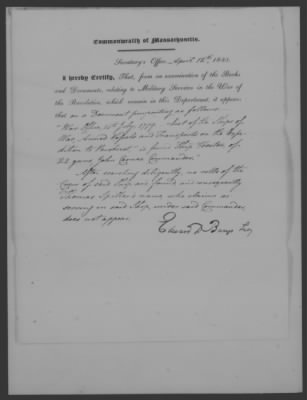 Commonwealth of Massachusetts.
Secretary's Office April 12th 1841.
I hereby Certify, That, from an examination of the Books
and Documents, relating to Military Service in the War of
the Revolution, which remain in this Department, it appears
that on a Document purporting as follows
"War Office, July 1779. List of the Ships of
War, Armed Vessels and Transports on the Expe-
dition to Penobscot" is found Ship Hector of
22 guns, John Carnes Commander."
After searching diligently, no rolls of the
Crew of said Ship are found and consequently
Thomas name, who claims as
serving in said Ship under said Commander,
does not appear.
Edward D. Bangs Secy